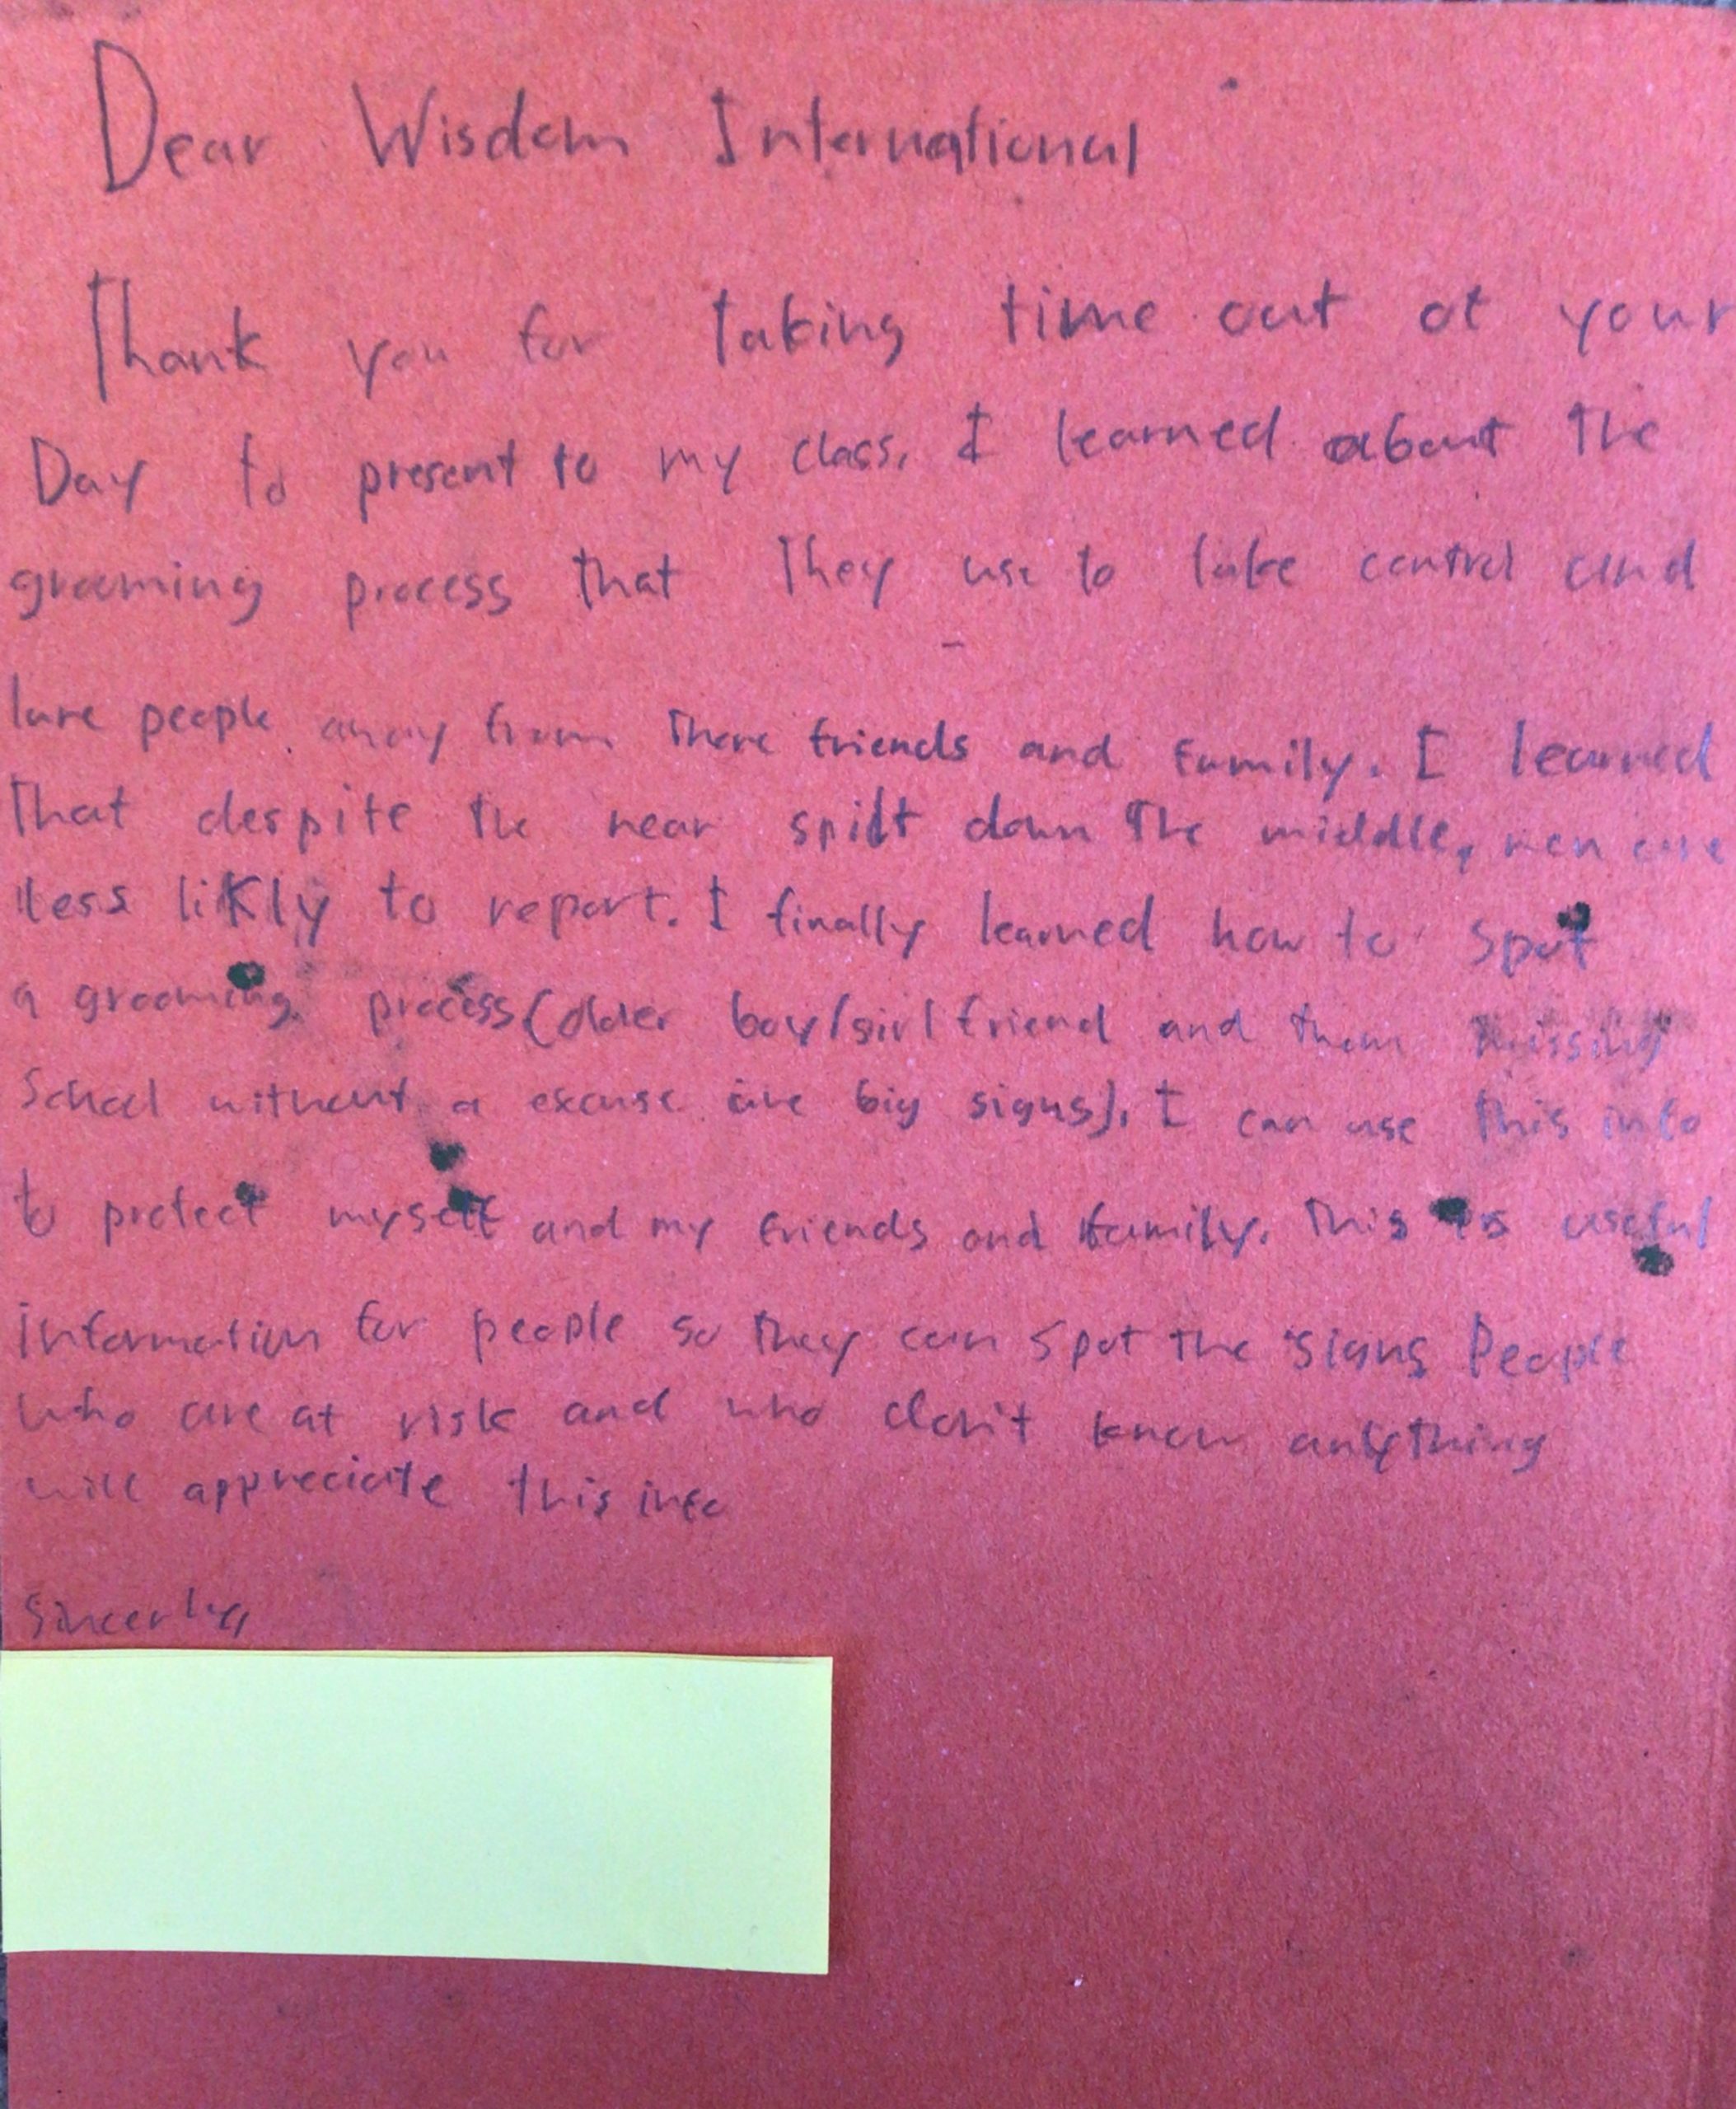 Dear Wisdom International
Thank you for taking time out of your
Day to present to my class. I learned about the
grooming process that they use to take control and
lure people away from there friends and family. I learned
that despite the near spilt down the middle, men are
less likely to report. I finally learned how to spot
a grooming process (older boy/girlfriend and them missing
School without a excuse are big signs). I can use this info
to protect myself and my friends and family. This is useful
information for people so they can spot the signs People
who are at risk and who don't know anything
will appreciate this info
Sincerly,